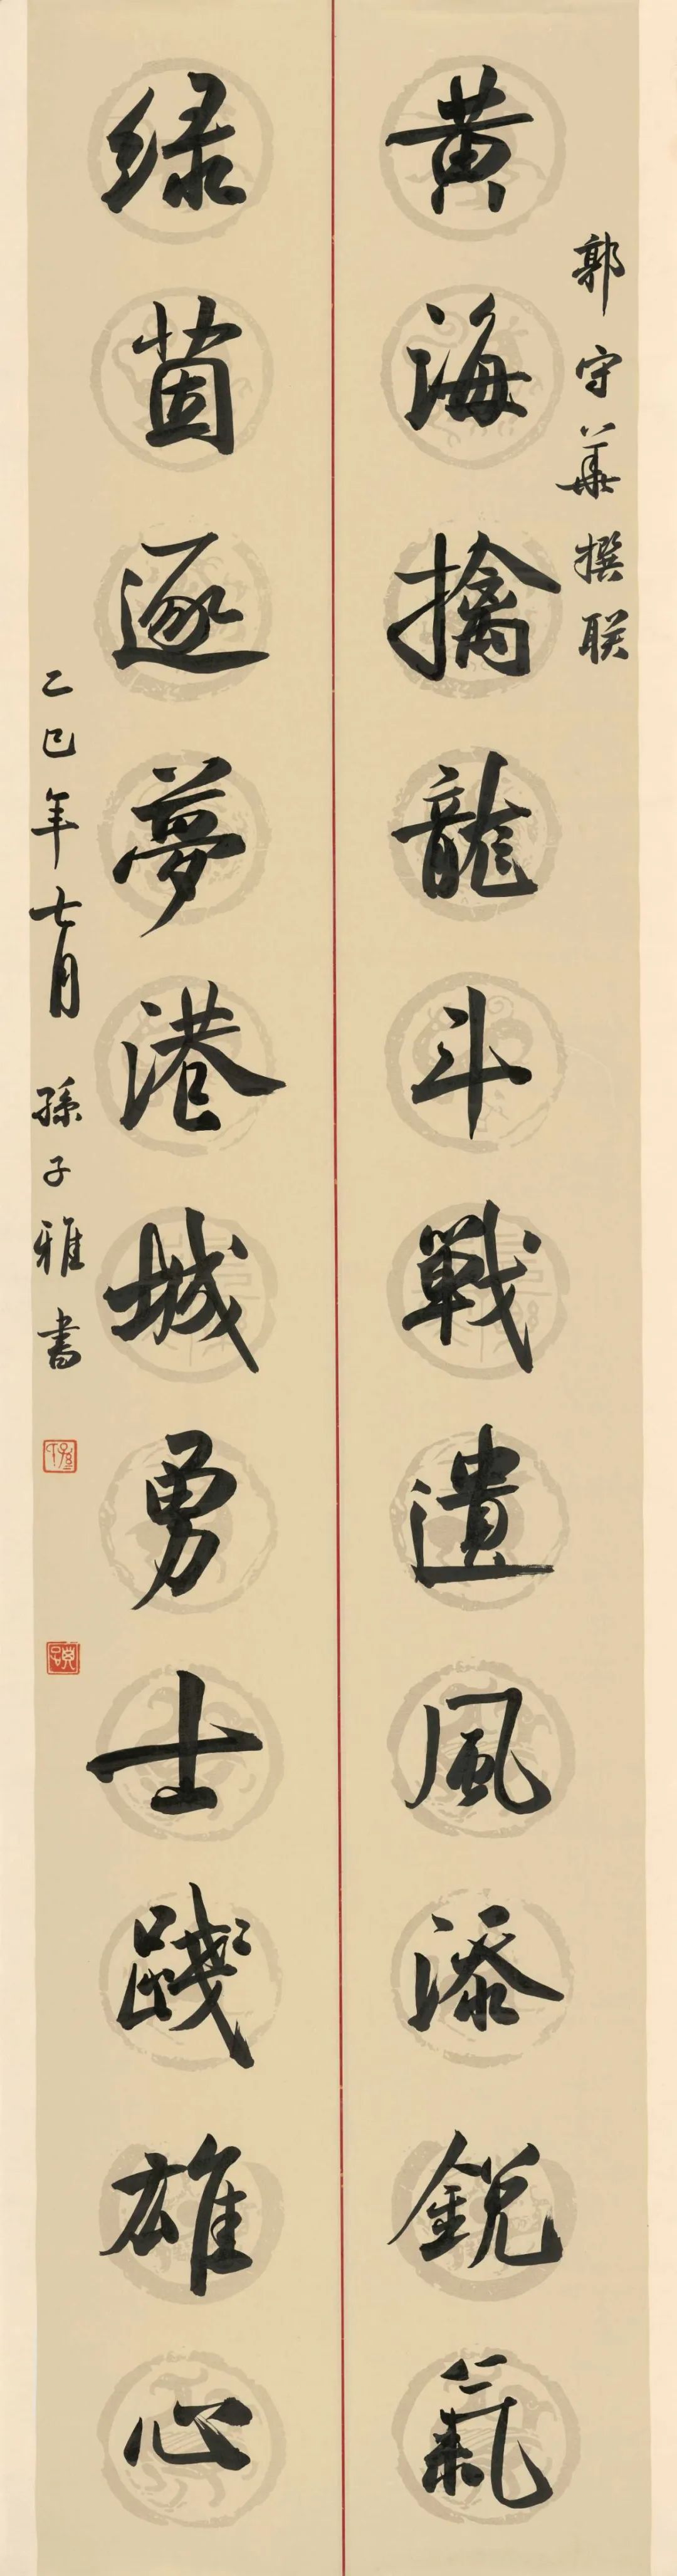 郭守華撰联
黄海擒龍斗戰遺風添鋭氣
绿茵逐夢港城勇士踐雄心
乙巳年七月孫子雅書